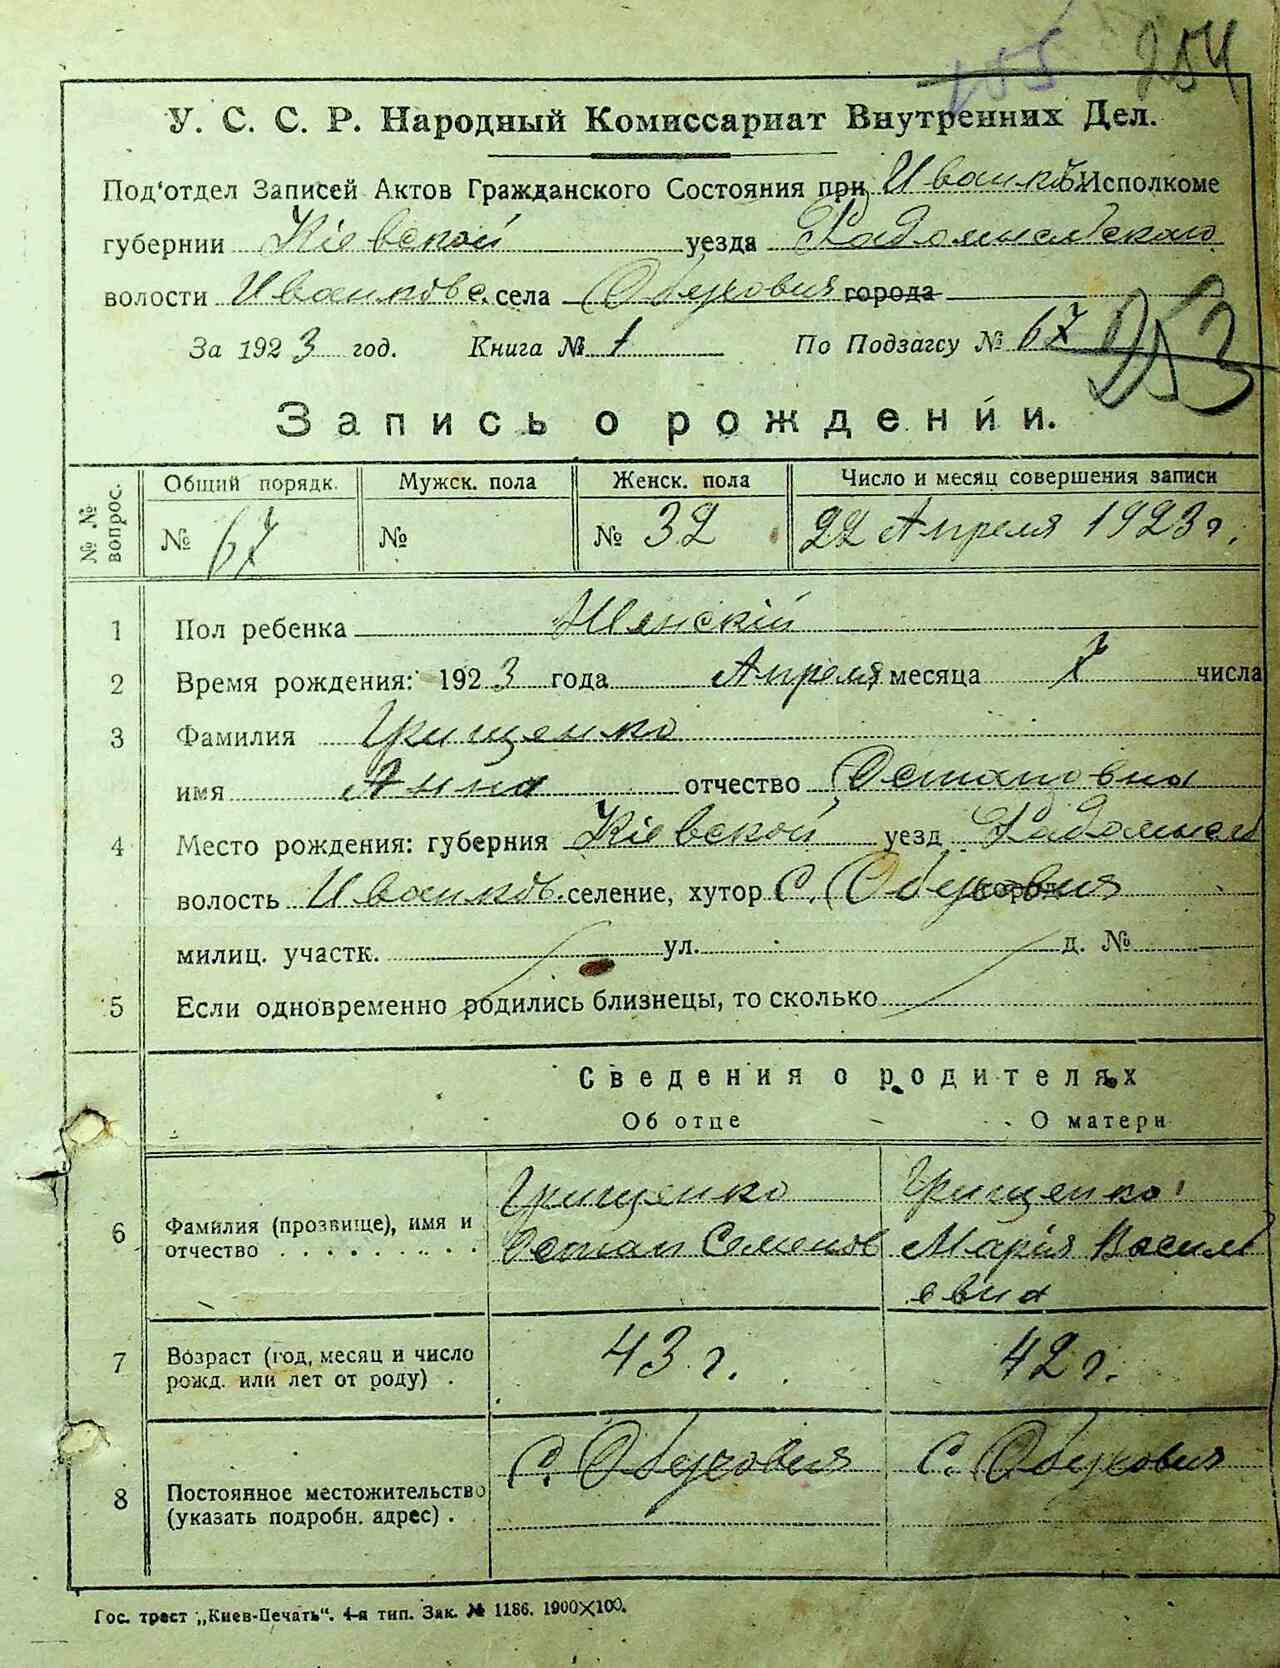 254
255
У. С. С. Р. Народный Комиссариат Внутренних Дел.
Под'отдел Записей Актов Гражданского Состояния при Иванков. Исполкоме
губернии Кіевской уезда Радомысльского
волости Иванковс. села Обуховичи города
За 1923 год. Книга № 1 По Подзагсу № 67
253
Запись о рождении.
№ № вопрос. Общий порядк. Мужск. пола Женск. пола Число и месяц совершения записи
№ 67 № № 32 22 Апреля 1923 г.
1 Пол ребенка Женскій
2 Время рождения: 1923 года Апреля месяца 7 числа
3 Фамилия Грищенко
имя Анна отчество Остаповна
4 Место рождения: губерния Кіевской уезд Радомысл
волость Иванков. селение, хутор С. Обуховичи
милиц. участк. ул. д. №
5 Если одновременно родились близнецы, то сколько
Сведения о родителях
Об отце О матери
6 Фамилия (прозвище), имя и отчество . . . . . . . . . .
Грищенко Остап Семенов
Грищенко Марія Василь
евна
7 Возраст (год, месяц и число рожд. или лет от роду) .
43 г. 42 г.
8 Постоянное местожительство (указать подробн. адрес) .
С. Обуховичи С. Обуховичи
Гос. трест „Киев-Печать“. 4-я тип. Зак. № 1186. 1900×100.